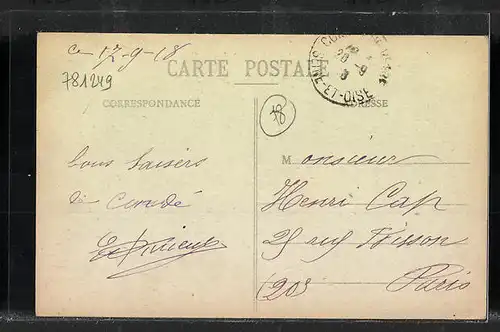 ce 17-9-18
781249
CARTE POSTALE
CORRESPONDANCE
ADRESSE
78
-ET-OISE
bons baisers
de condé
Monsieur
Henri Cap
25 rue
(20e
Paris